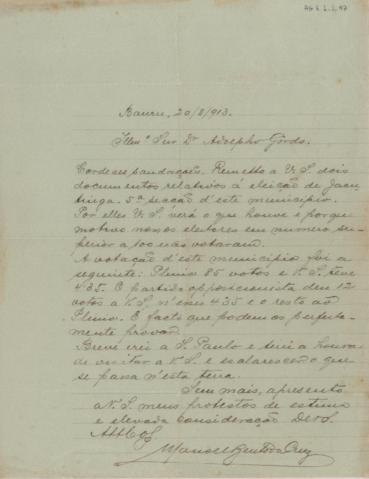 AG 1.2.97
Bauru, 20/8/913.
Illmº Snr. Dr. Adolpho Gordo.
Cordeaes saudações. Remetto a V. S. dois
documentos relativos á eleição de Jacu
tinga. 5ª secção d'este municipio.
Por elles V. S. verá o que houve e porque
motivo nossos eleitores em numero su-
perior a 100 não votaram.
A votação d'este municipio foi a
seguinte: Plinio 85 votos e V. S. teve
435. O partido opposicionista deu 12
votos a V. S. n'esses 435 e o resto ao
Plinio. É facto que podemos perfeita-
mente provar.
Breve irei a S. Paulo e terei a honra
de visitar a V. S. e esclarescer o que
se passa n'esta terra.
Sem mais, apresento
a V. S. meus protestos de estima
e elevada consideração De V. S.
Manoel Bento da Cruz